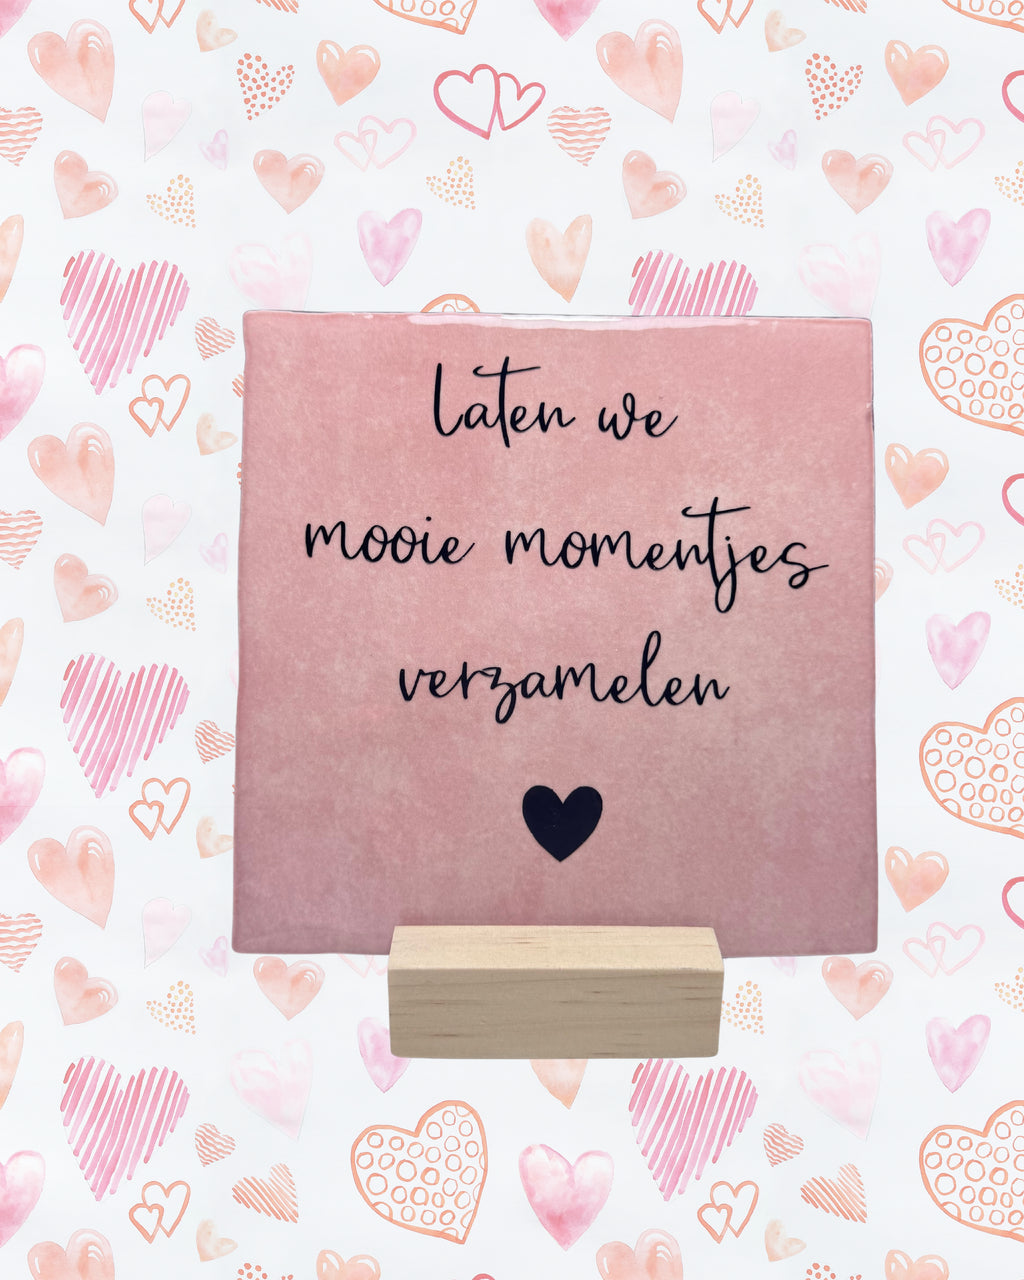 Laten we
mooie momentjes
verzamelen